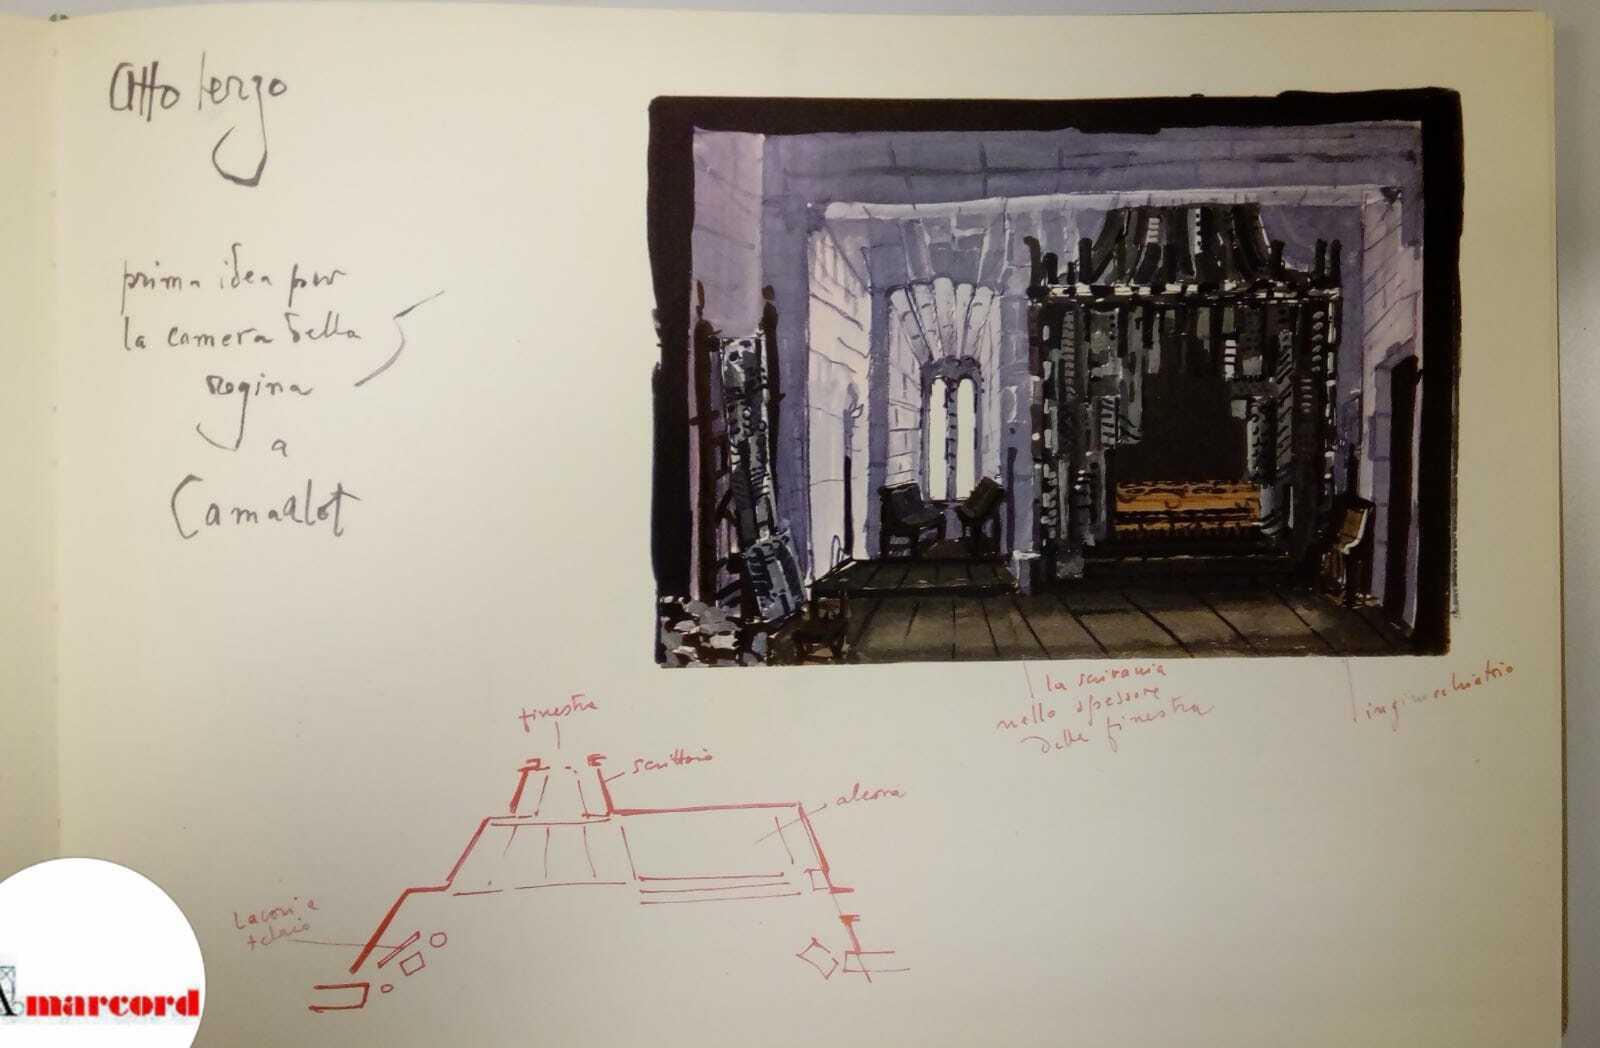 atto terzo
prima idea per
la camera della
regina
a
Camaalot
la scrivania
nello spessore
della finestra
inginocchiatoio
finestra
scrittoio
alcova
telaio
Amarcord